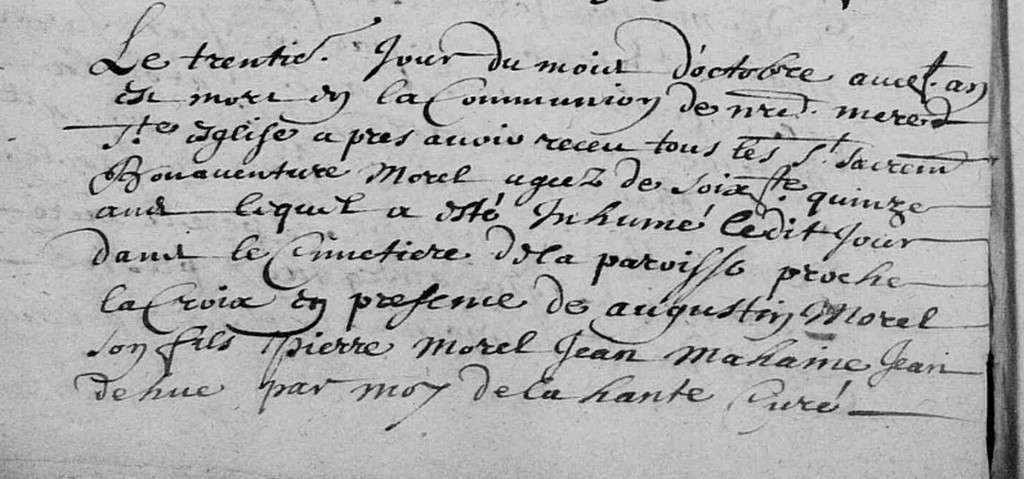 Le trentie. Jour du mois d'octobre aud.t an
est mort en la Communion de nre. mere
Ste église apres avoir receu tous les Sts sacrem
Bonaventure Morel agez de soixte. quinze
ans lequel a esté Inhumé ledit Jour
dans le Cimetiere de la paroisse proche
la Croix en presence de augustin Morel
son fils pierre Morel Jean Mahaine Jean
dehue par moy de la hante Curé